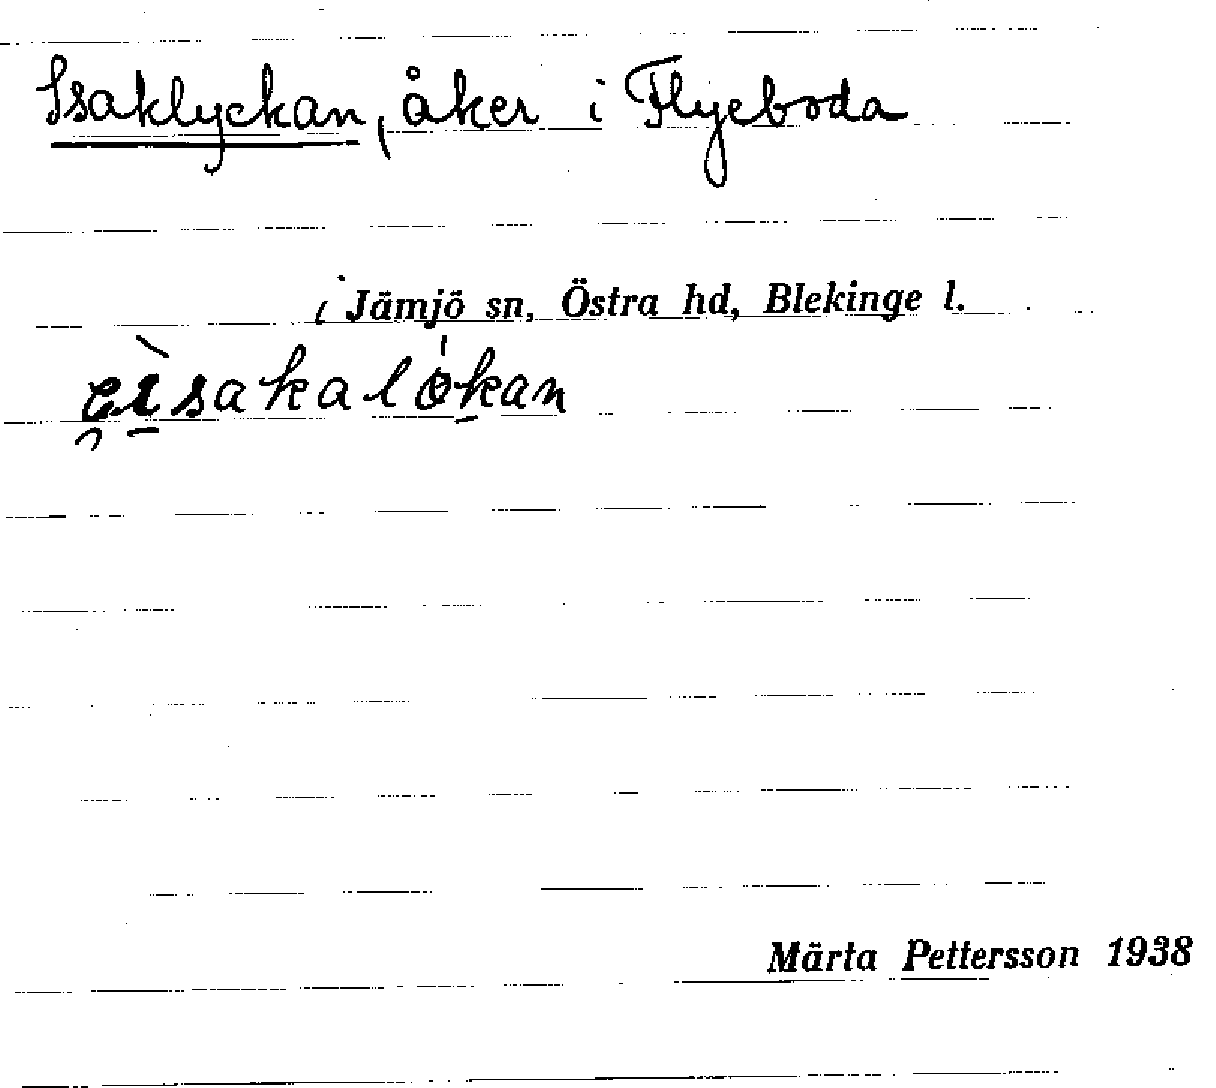 Isaklyckan, åker i Flyeboda
i Jämjö sn, Östra hd, Blekinge l.
ei̠̖sakaló̵kan
Märta Pettersson 1938